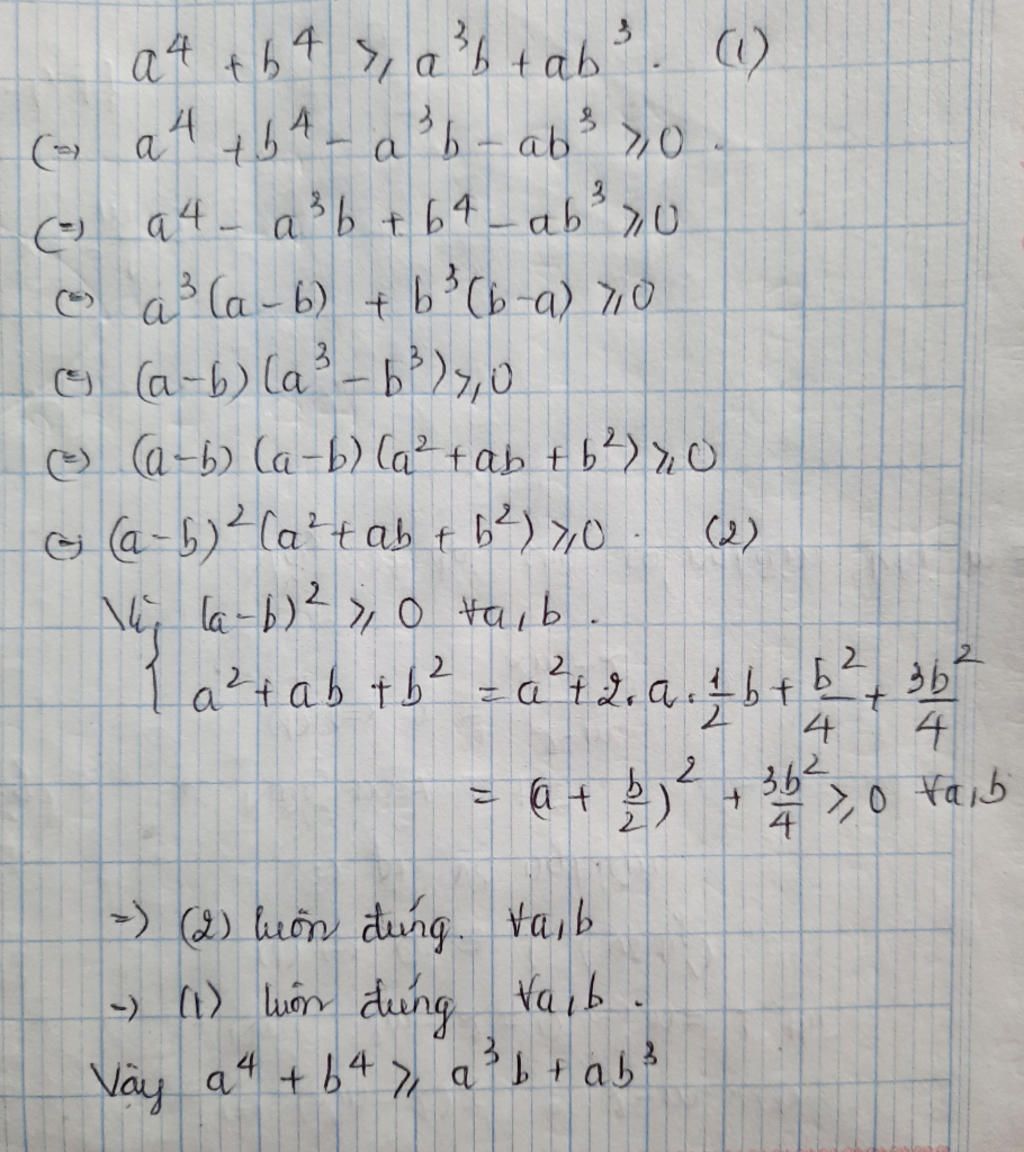 a⁴ + b⁴ ⩾ a³b + ab³. (1)
(=) a⁴ + b⁴ - a³b - ab³ ⩾ 0.
(=) a⁴ - a³b + b⁴ - ab³ ⩾ 0
(=) a³(a - b) + b³(b - a) ⩾ 0
(=) (a - b)(a³ - b³) ⩾ 0
(=) (a - b)(a - b)(a² + ab + b²) ⩾ 0
(=) (a - b)²(a² + ab + b²) ⩾ 0. (2)
Vì { (a - b)² ⩾ 0 ∀a, b.
a² + ab + b² = a² + 2.a.1/2 b + b²/4 + 3b²/4
= (a + b/2)² + 3b²/4 ⩾ 0 ∀a, b
=) (2) luôn đúng. ∀a, b
=) (1) luôn đúng ∀a, b.
Vậy a⁴ + b⁴ ⩾ a³b + ab³